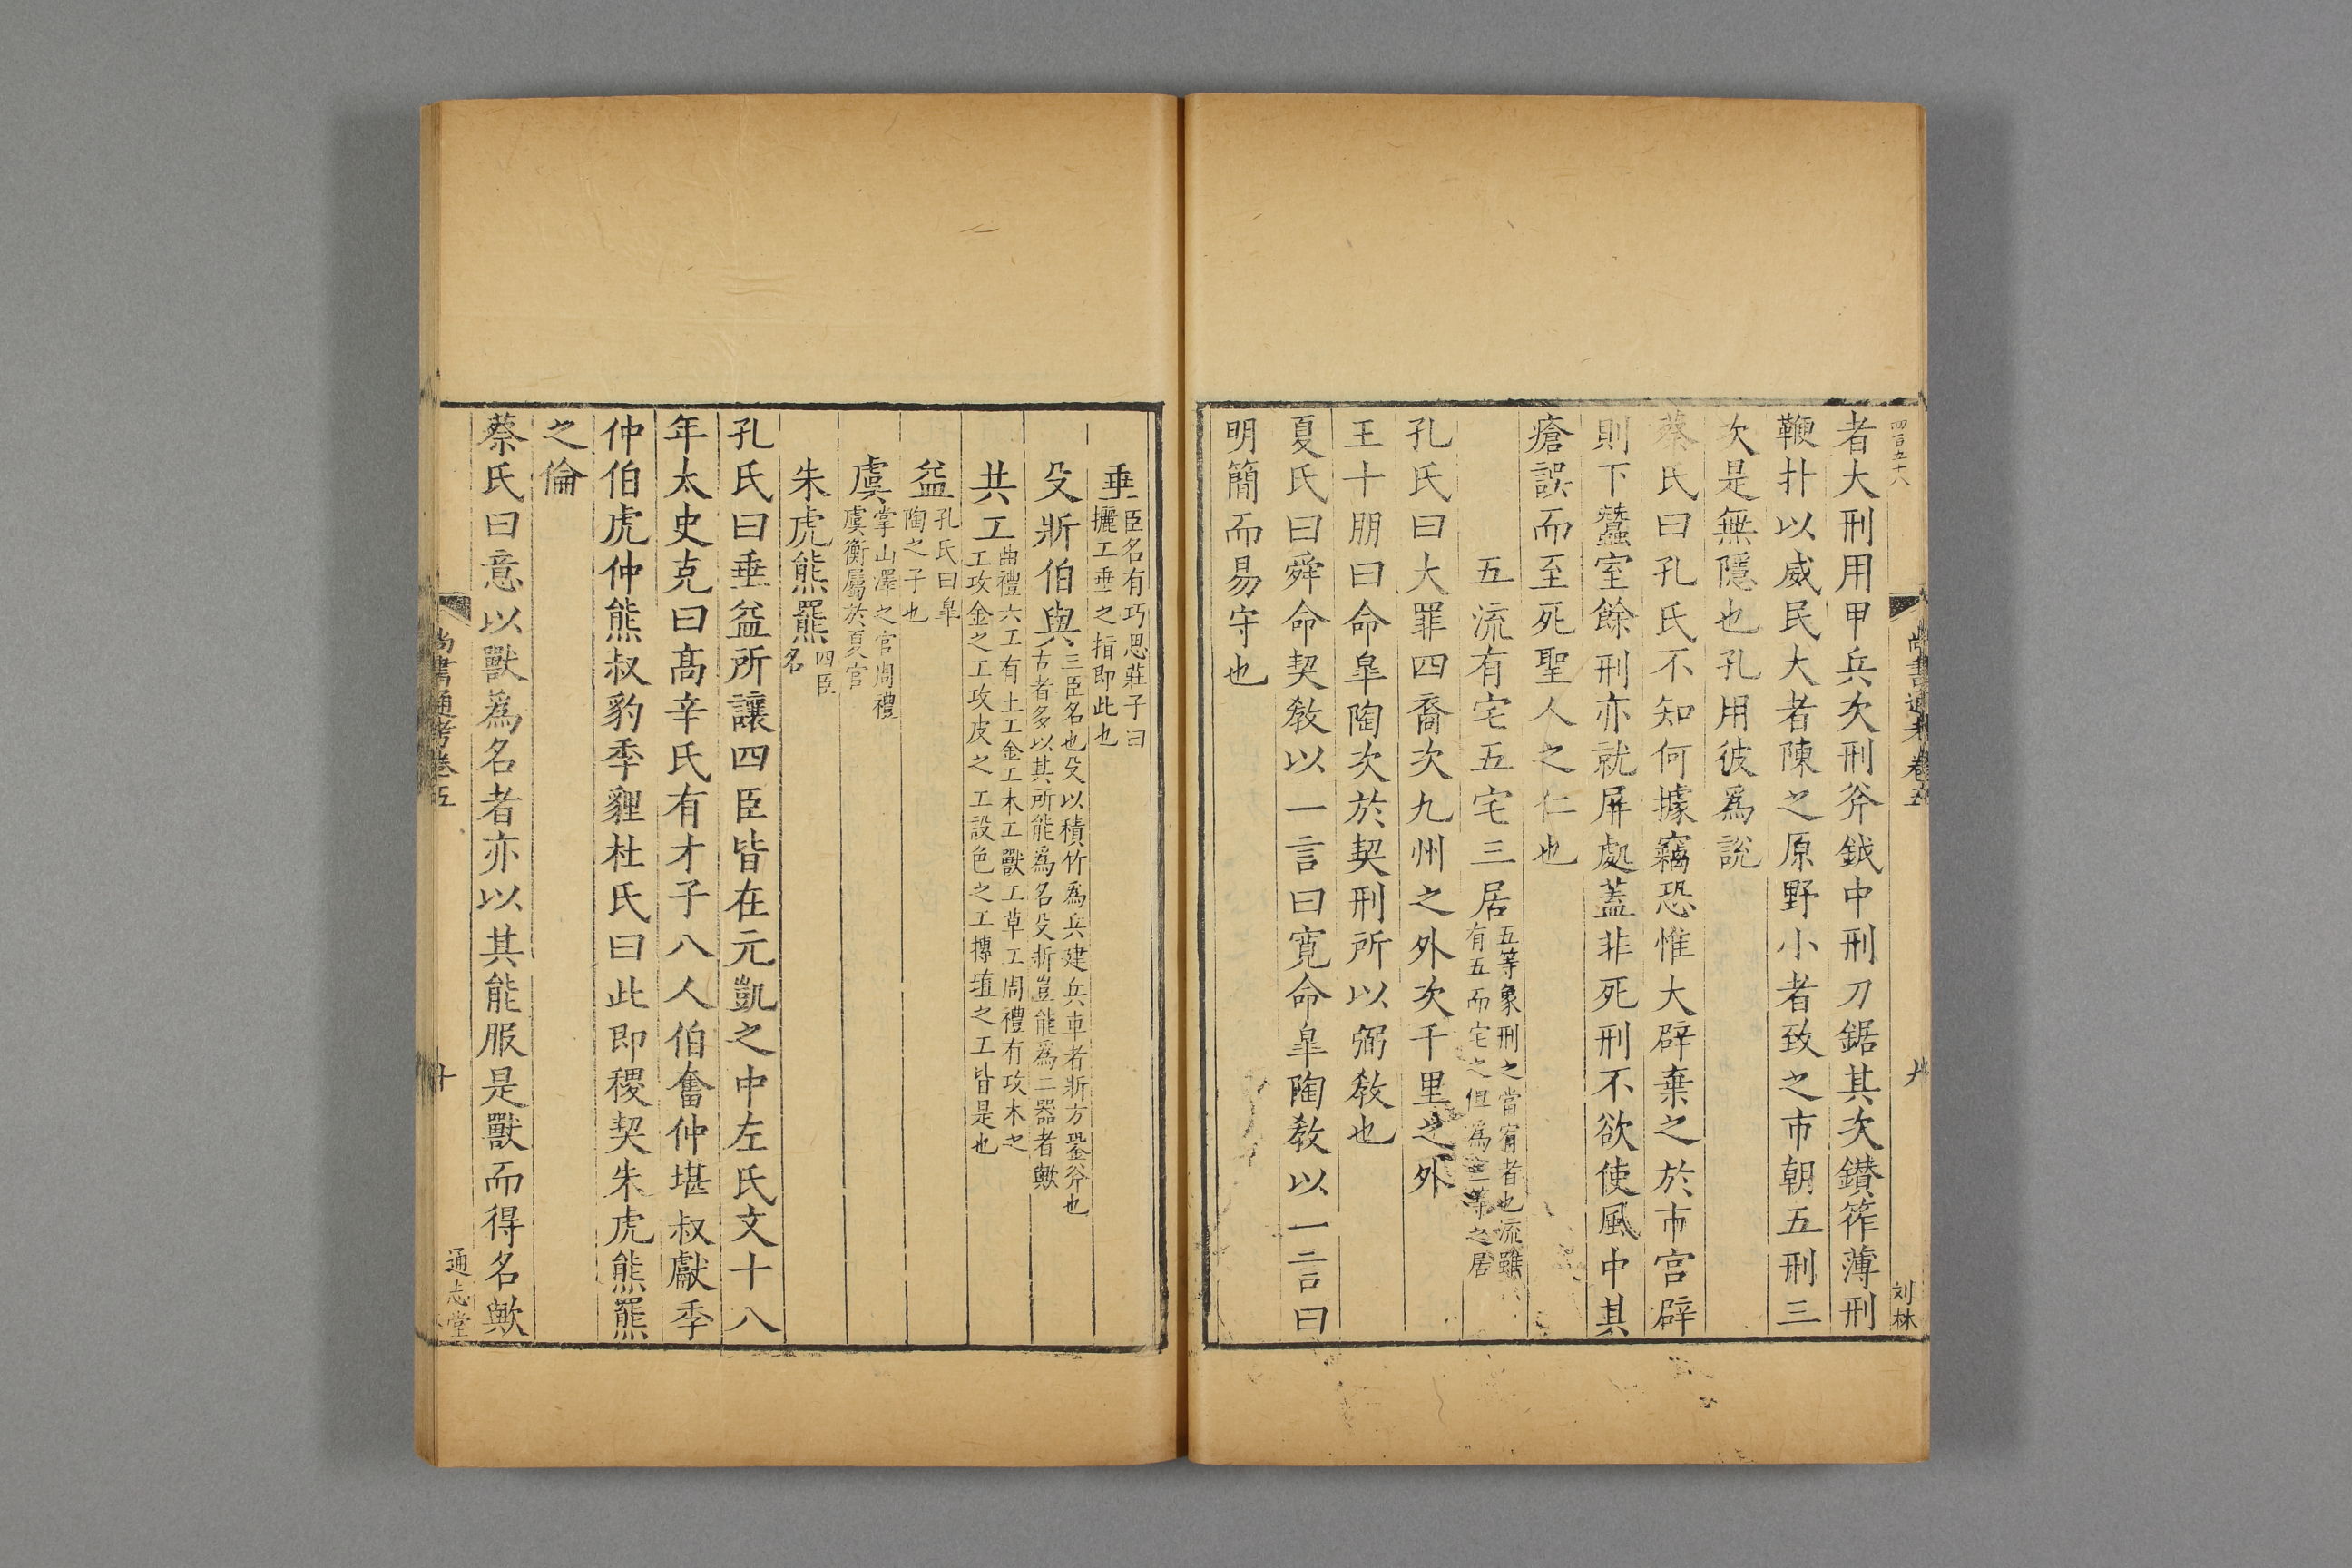 四百五十八
尚書通考卷五
九
刘林
者大刑用甲兵次刑斧鉞中刑刀鋸其次鑚筰薄刑
鞭扑以威民大者陳之原野小者致之市朝五刑三
次是無隱也孔用彼爲說
蔡氏曰孔氏不知何據竊恐惟大辟棄之於市宫辟
則下蠶室餘刑亦就屏處蓋非死刑不欲使風中其
瘡誤而至死聖人之仁也
五流有宅五宅三居五等象刑之當宥者也流雖
有五而宅之但爲三等之居
孔氏曰大罪四裔次九州之外次千里之外
王十朋曰命臯陶次於契刑所以弼敎也
夏氏曰舜命契敎以一言曰寬命臯陶敎以一言曰
明簡而易守也
垂臣名有巧思莊子曰
攦工垂之指即此也
殳斨伯與三臣名也殳以積竹爲兵建兵車者斨方銎斧也
古者多以其所能爲名殳斨豈能爲二器者歟
共工曲禮六工有土工金工木工獸工草工周禮有攻木之
工攻金之工攻皮之工設色之工摶埴之工皆是也
益孔氏曰臯
陶之子也
虞掌山澤之官周禮
虞衡屬於夏官
朱虎熊羆四臣
名
孔氏曰垂益所讓四臣皆在元凱之中左氏文十八
年太史克曰髙辛氏有才子八人伯奮仲堪叔獻季
仲伯虎仲熊叔豹季貍杜氏曰此即稷契朱虎熊羆
之倫
蔡氏曰意以獸爲名者亦以其能服是獸而得名歟
尚書通考卷五
十
通志堂